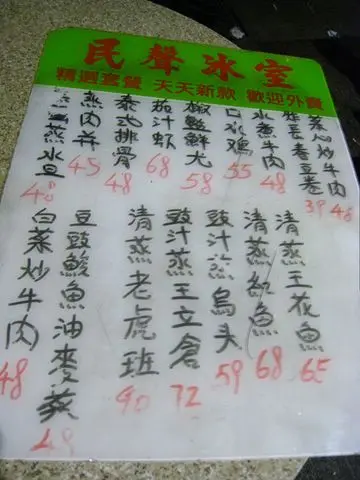 民聲冰室
精選套餐 天天新款 歡迎外賣
菜心炒牛肉
炸長春豆卷 39
水煮牛肉 48
口水雞 55
椒鹽鮮尤 58
茄汁蝦 68
泰式排骨 48
蒸肉弁 45
蒸水旦 48
清蒸王花魚 65
清蒸紅魚 68
豉汁蒸烏头 59
豉汁蒸王立倉 72
清蒸老虎班 90
豆豉鯪魚油麥菜 48
白菜炒牛肉 48